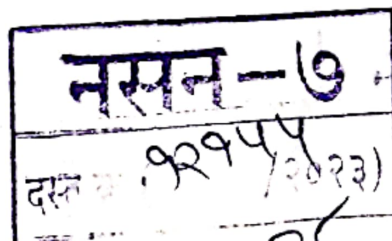 नसन-७
दस्त क्र. १२१५५/२०२३)